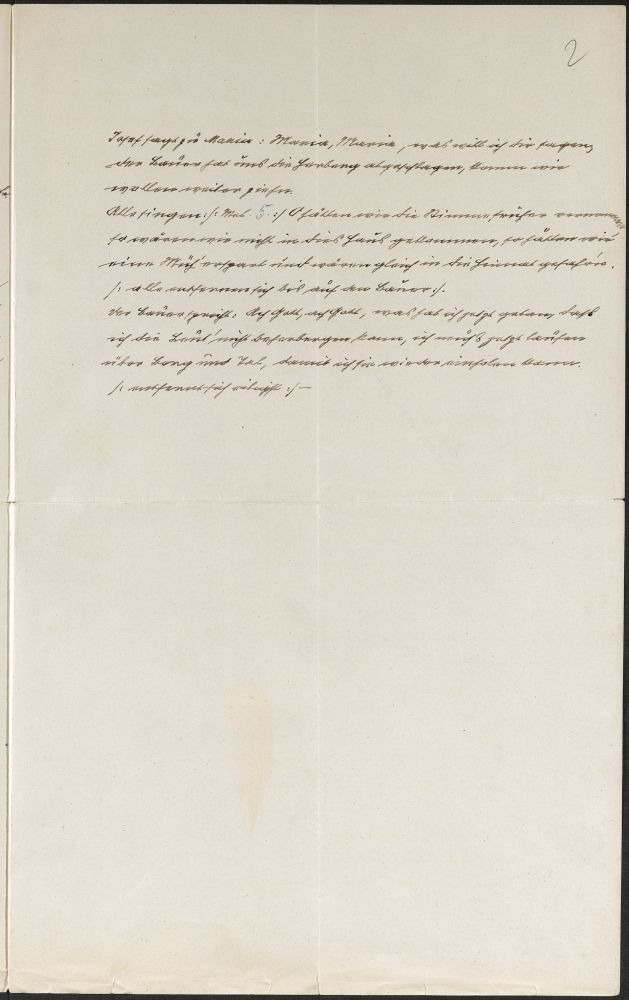 2
Josef sagt zu Maria: Maria, Maria, was will ich dir sagen,
der Bauer hat uns die Herberg abgeschlagen, komm wir
wollen weiter ziehn.
Alle singen: /: Mel. 5. :/ O hätten wir die Stimme früher vernommen
so wären wir nicht in dies Haus gekommen, so hätten wir
eine Müh' erspart und wären gleich in die Heimat gefahr'n.
/: alle entfernen sich bis auf den Bauer :/.
Der Bauer spricht: Ach Gott, ach Gott, was hab ich jetzt getan, daß
ich die Leut' nicht beherbergen kann, ich muß jetzt laufen
über Berg und Tal, damit ich sie wieder einholen kann.
/: entfernt sich eiligst :/ —